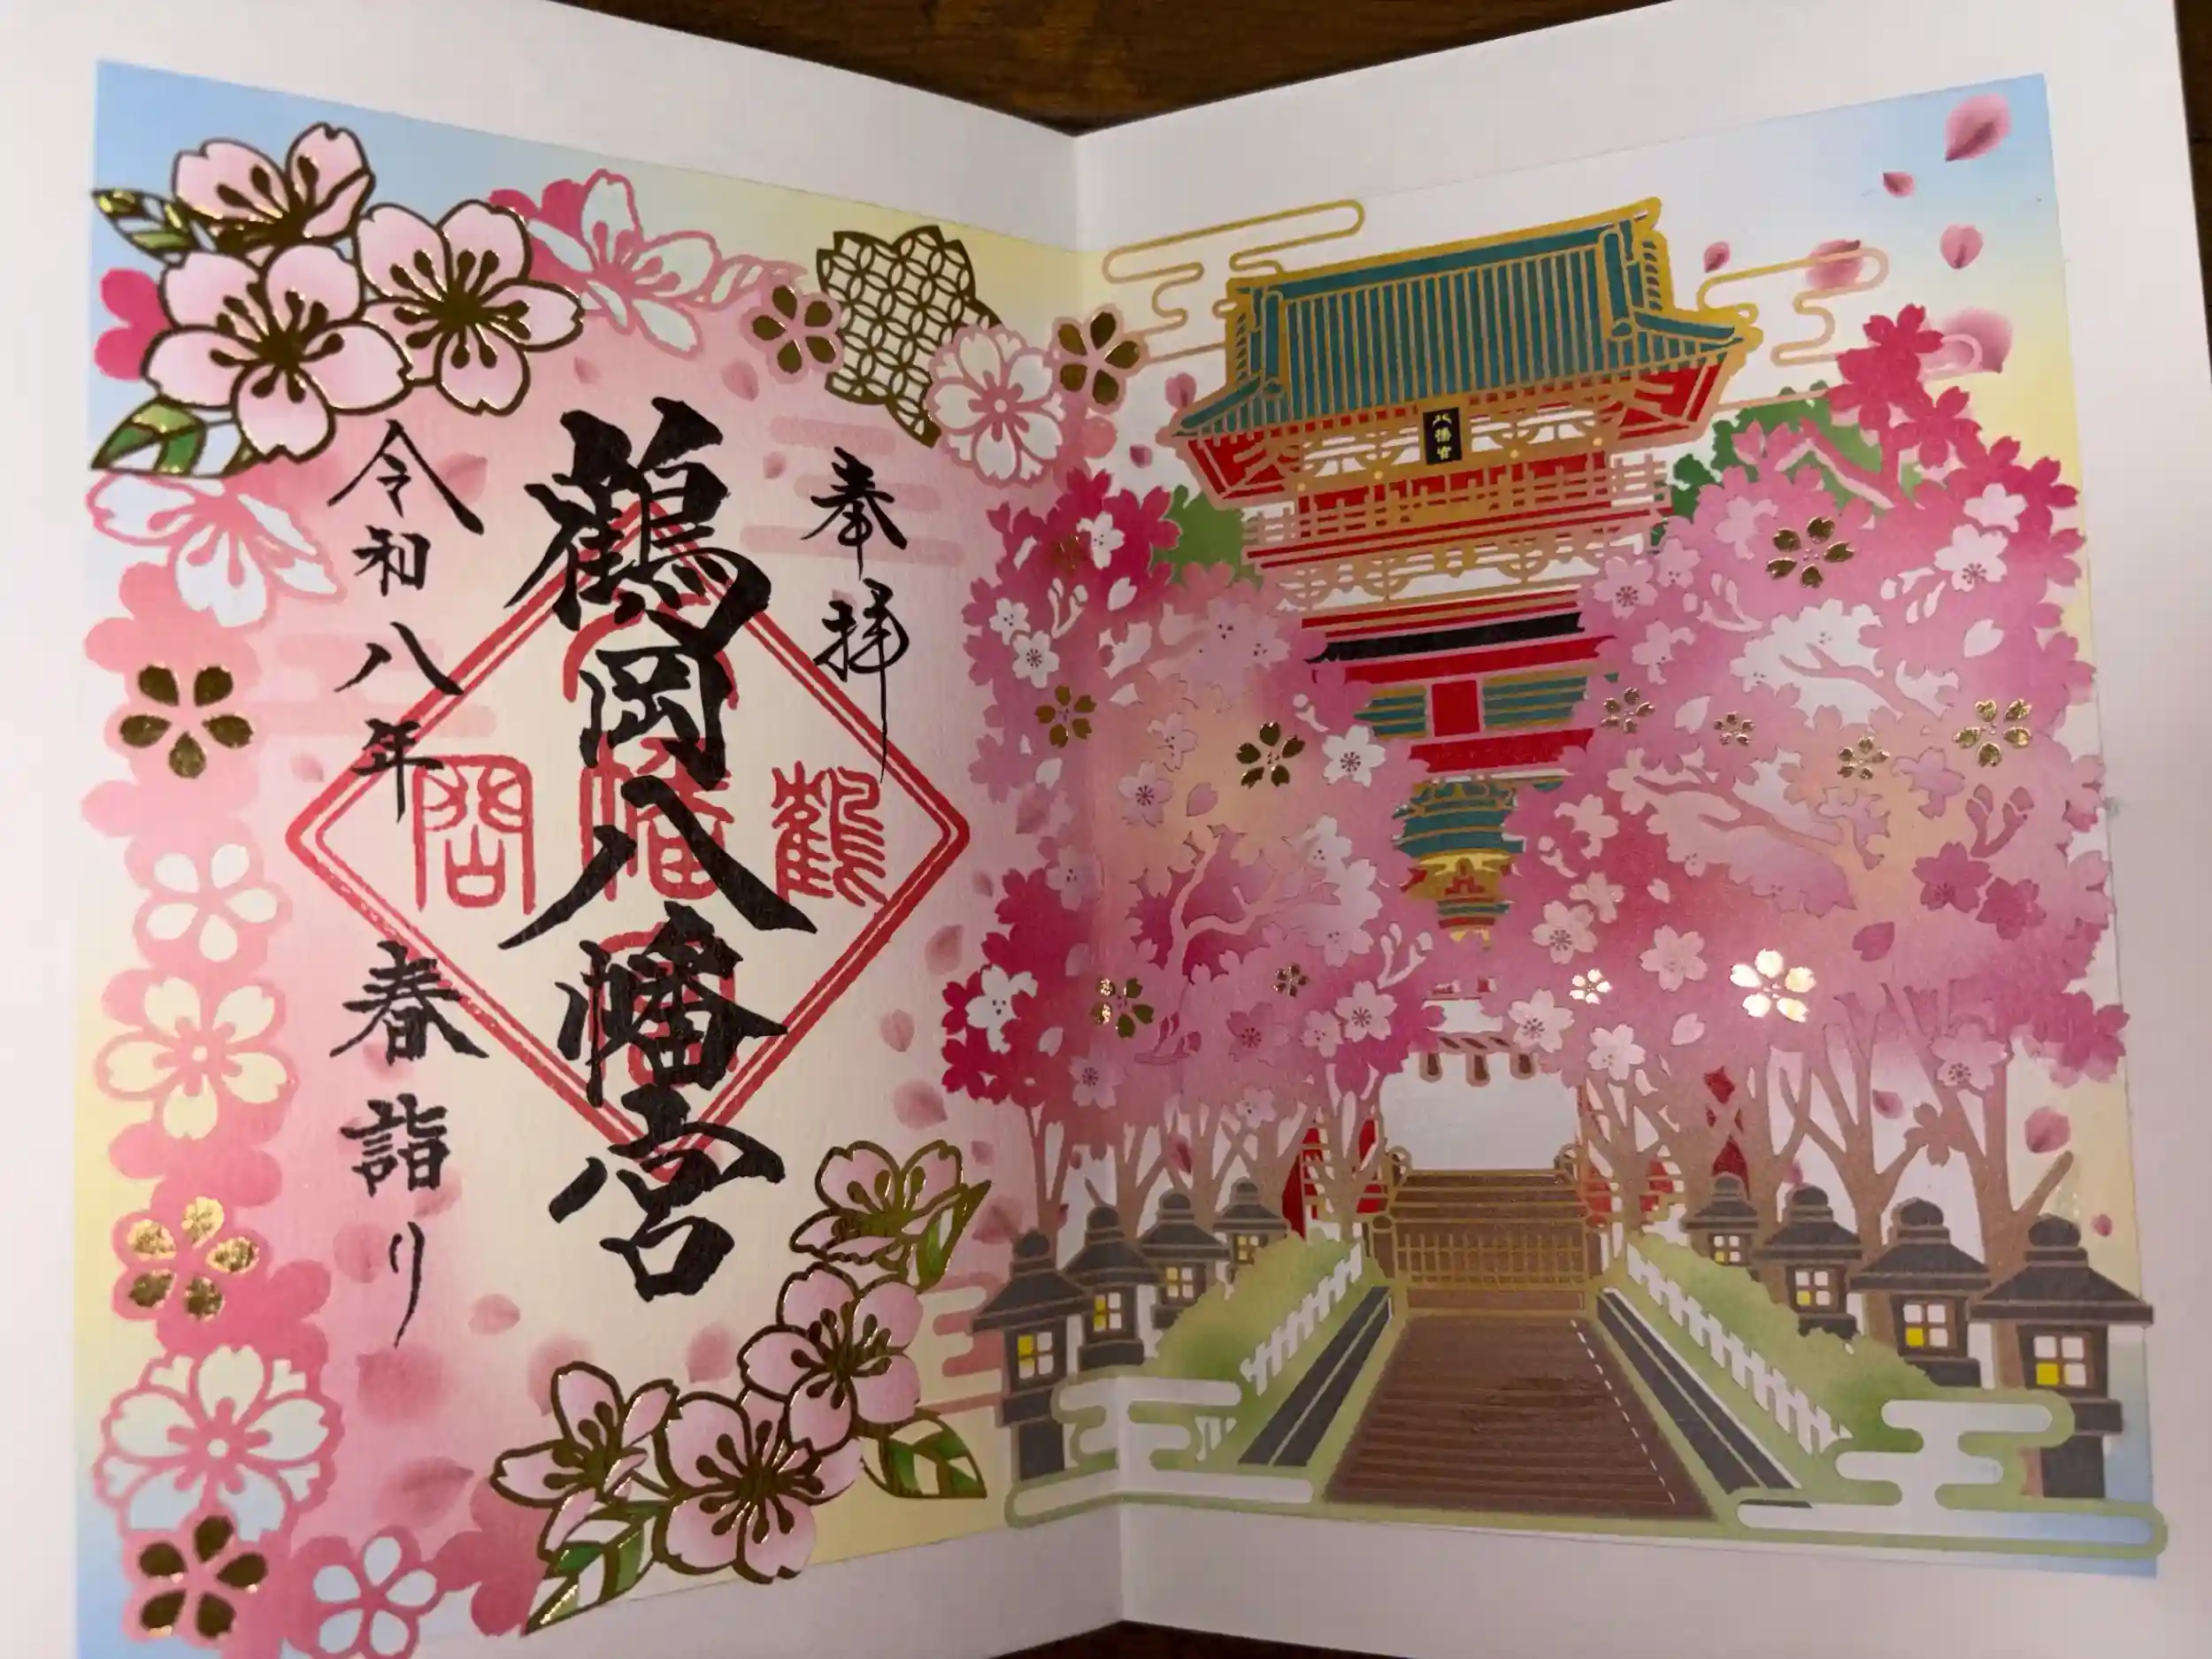 奉拝
鶴岡八幡宮
鶴
幡
岡
令和八年
春詣り
八幡宮